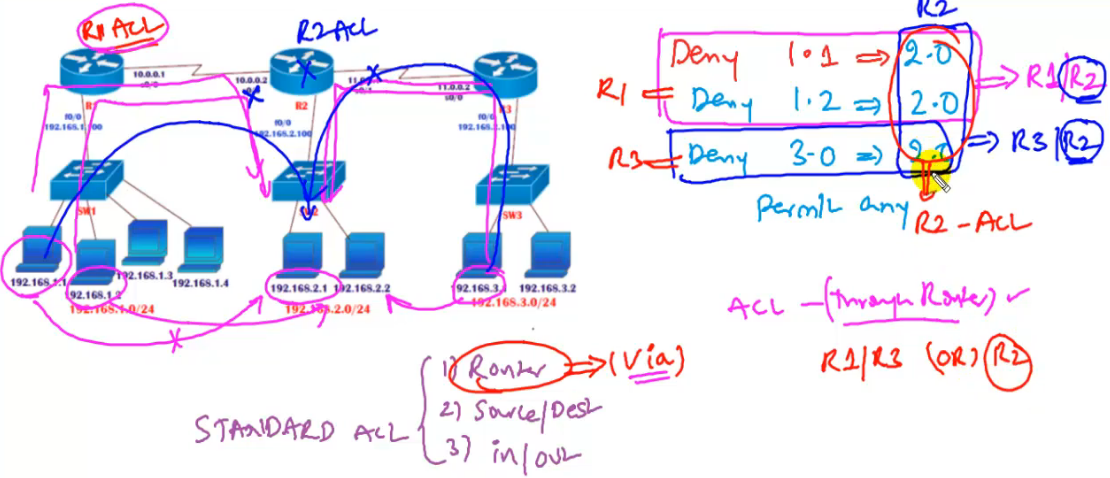 R1 ACL
R2 ACL
10.0.0.1
s0/0
10.0.0.2
R2
11.0.0.2
s0/0
f0/0
192.168.1.100
f0/0
192.168.2.100
f0/0
SW1
SW3
192.168.1.1
192.168.1.3
192.168.1.4
192.168.2.1
192.168.2.2
192.168.3.
192.168.3.2
192.168.1.0/24
192.168.2.0/24
192.168.3.0/24
R2
Deny 1.1 ⇒ 2.0
R1 = Deny 1.2 ⇒ 2.0 ⇒ R1/R2
R3 = Deny 3.0 ⇒ 2.0 ⇒ R3/R2
Permit any
R2 - ACL
ACL - (through Router) ✓
R1/R3 (OR) R2
STANDARD ACL
1) Router ⇒ (Via)
2) Source/Dest
3) in/out